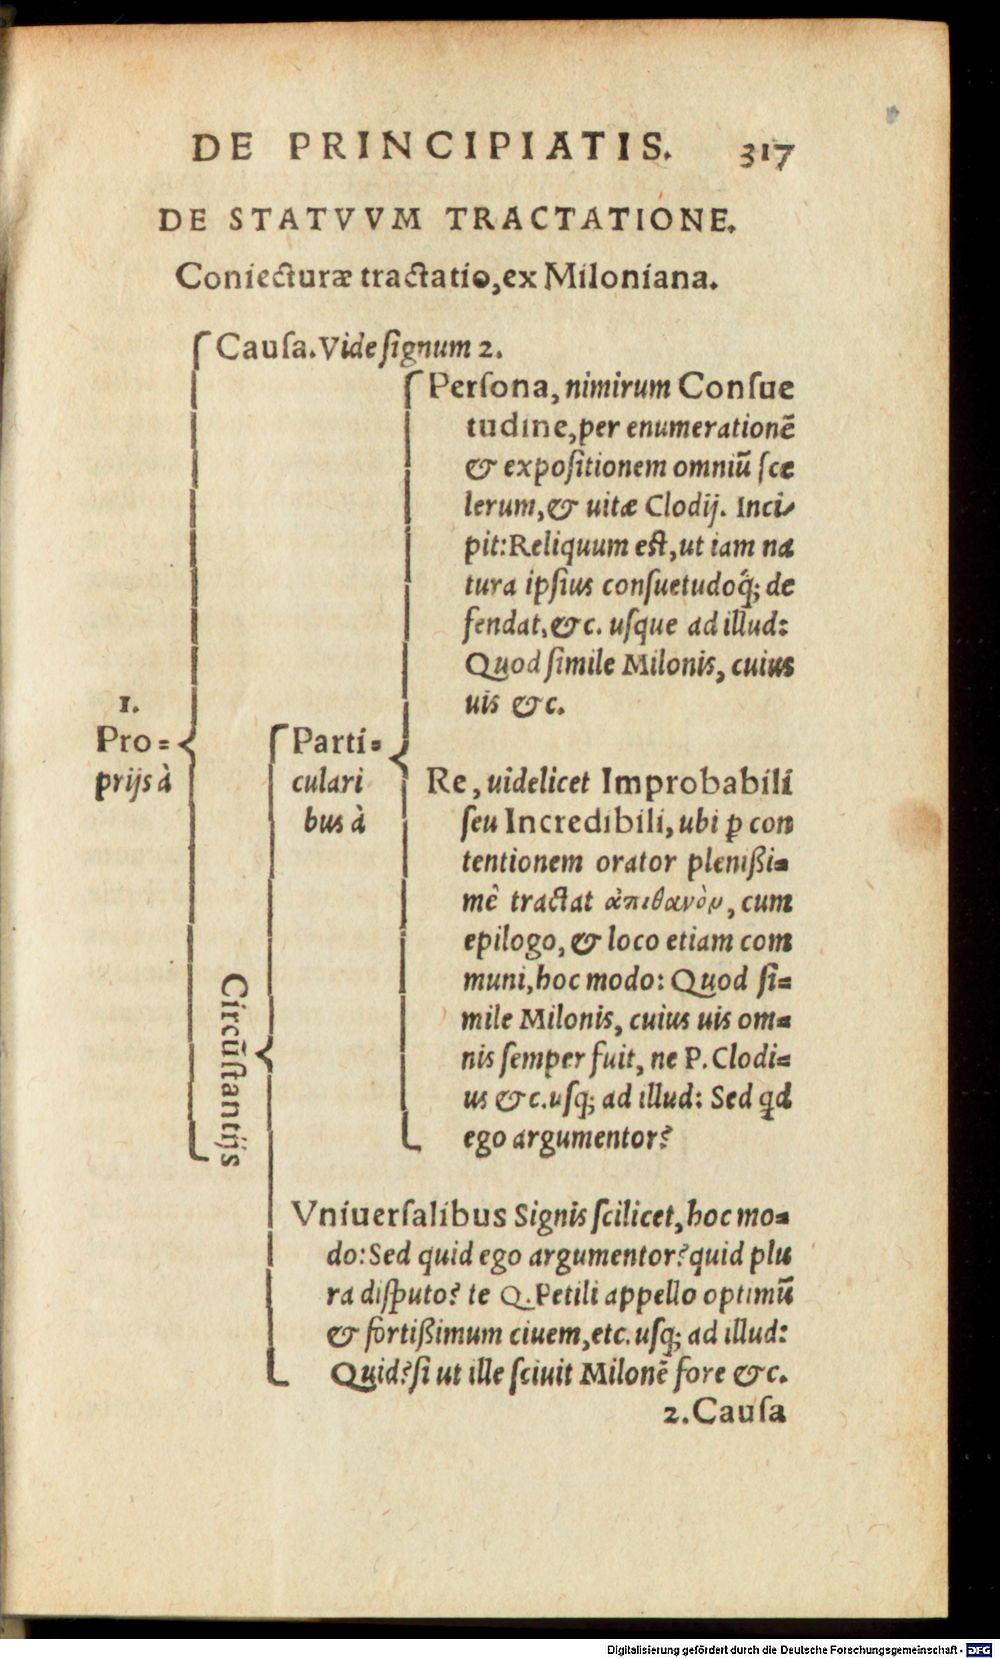 DE PRINCIPIATIS. 317
DE STATVVM TRACTATIONE.
Coniecturæ tractatio, ex Miloniana.
Causa. Vide signum 2.
Persona, nimirum Consue
tudine, per enumerationē
& expositionem omniū sce
lerum, & uitæ Clodij. Inci-
pit: Reliquum est, ut iam na
tura ipsius consuetudoq́; de
fendat, &c. usque ad illud:
Quod simile Milonis, cuius
uis &c.
1.
Pro=
prijs à
Parti=
culari
bus à
Re, uidelicet Improbabili
seu Incredibili, ubi ꝑ con
tentionem orator plenißi=
mè tractat ἀπιθανὸν, cum
epilogo, & loco etiam com
muni, hoc modo: Quod si=
mile Milonis, cuius uis om=
nis semper fuit, ne P. Clodi=
us &c. usq; ad illud: Sed qd
ego argumentor?
Circūstantijs
Vniuersalibus Signis scilicet, hoc mo=
do: Sed quid ego argumentor? quid plu
ra disputo? te Q. Petili appello optimū
& fortißimum ciuem, etc. usq; ad illud:
Quid? si ut ille sciuit Milonē fore &c.
2. Causa
Digitalisierung gefördert durch die Deutsche Forschungsgemeinschaft - DFG